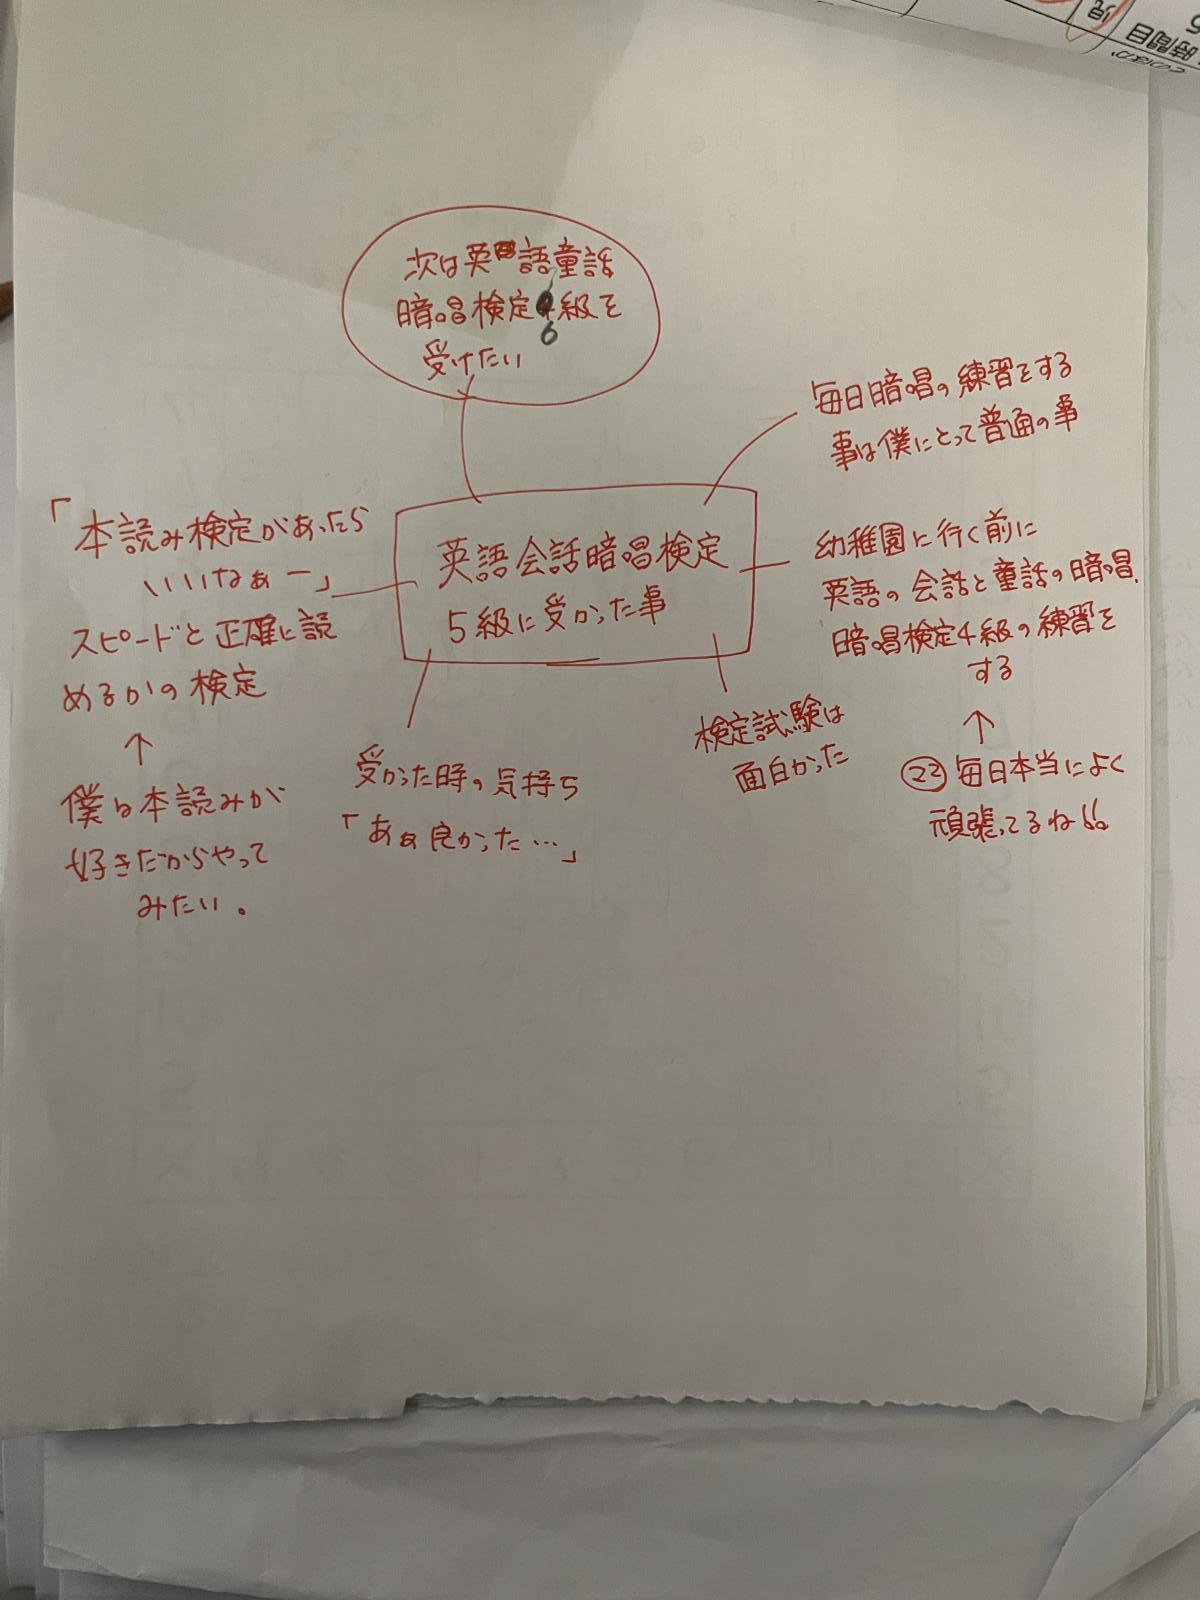 時間目
次は英語童話
暗唱検定6級を
受けたい
毎日暗唱の練習をする
事は僕にとって普通の事
英語会話暗唱検定
5級に受かった事
「本読み検定があったら
いいなぁー」
スピードと正確に読
めるかの検定
↑
僕は本読みが
好きだからやって
みたい。
受かった時の気持ち
「あぁ良かった…」
検定試験は
面白かった
幼稚園に行く前に
英語の会話と童話の暗唱、
暗唱検定4級の練習を
する
↑
毎日本当によく
頑張ってるね